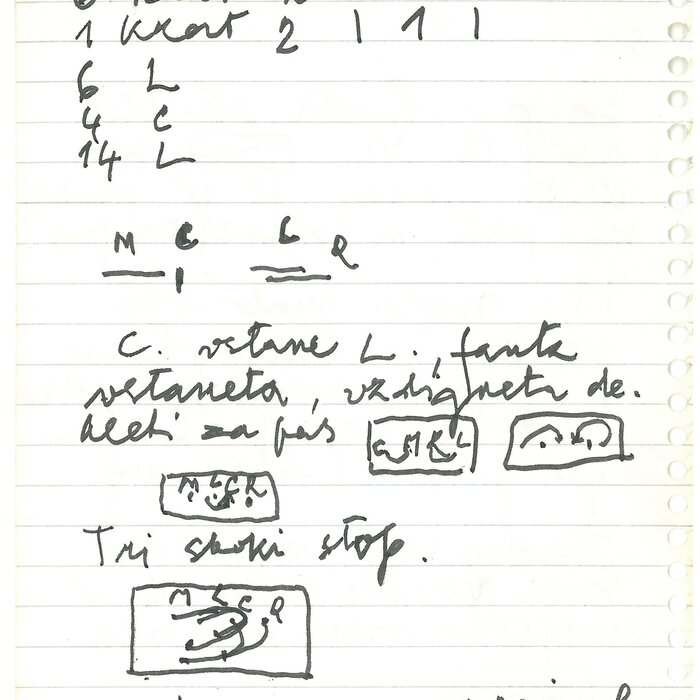 1 krat 2 1 1 1
6 L
4 C
14 L
M C L R
C. vstane L., fanta
vstaneta, vzdigneta de-
kleti za pás
C M R L
M L C R
Tri skoki stop.
M L C R